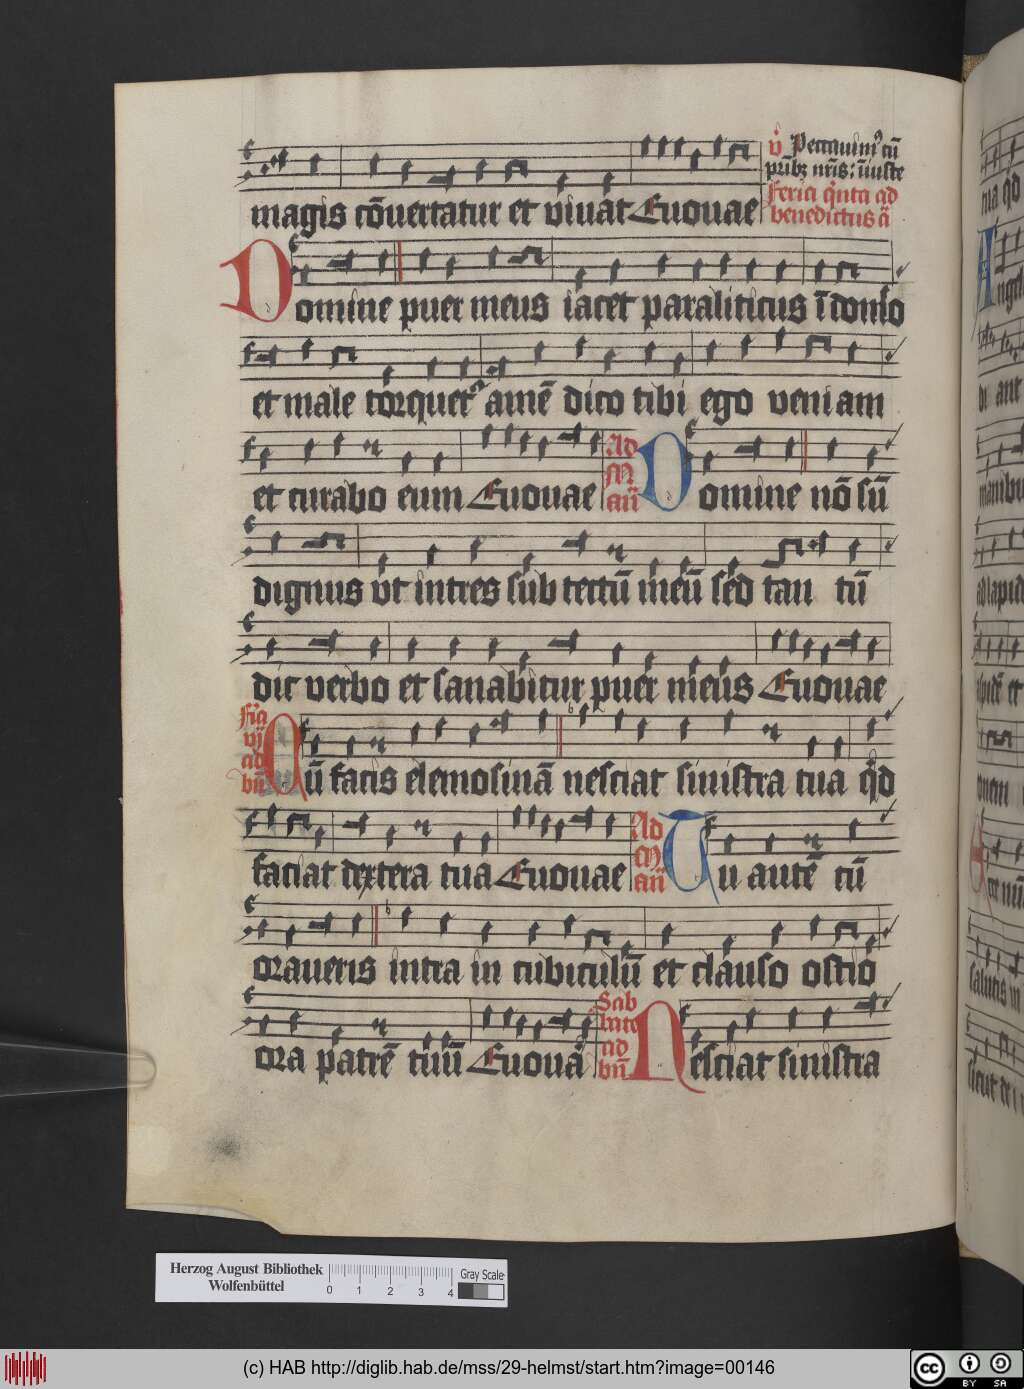 magis cōuertatur et viuat Euouae
v̇ Peccauimꝰ cū
pr̄ibꝫ nr̄is: īiuste
Feria q̇nta ad
benedictus ā
Domine puer meus iacet paraliticus ī domo
et male torquet᷒ amē dico tibi ego veniam
et curabo eum Euouae Ad M an̄ Domine nō sū
dignus vt intres sub tectū meū sed tan tū
dic verbo et sanabitur puer meus Euouae
fīa vj ad bn̄ Cū facis elemosinā nesciat sinistra tua q̇d
faciat dextera tua Euouae Ad M an̄ Tu autē cū
oraueris intra in cubiculū et clauso ostio
ora patrē tuū Euoua Sab bato ad bn̄ Nesciat sinistra
Herzog August Bibliothek
Wolfenbüttel
0 1 2 3 4
Gray Scale
(c) HAB http://diglib.hab.de/mss/29-helmst/start.htm?image=00146
cc BY SA